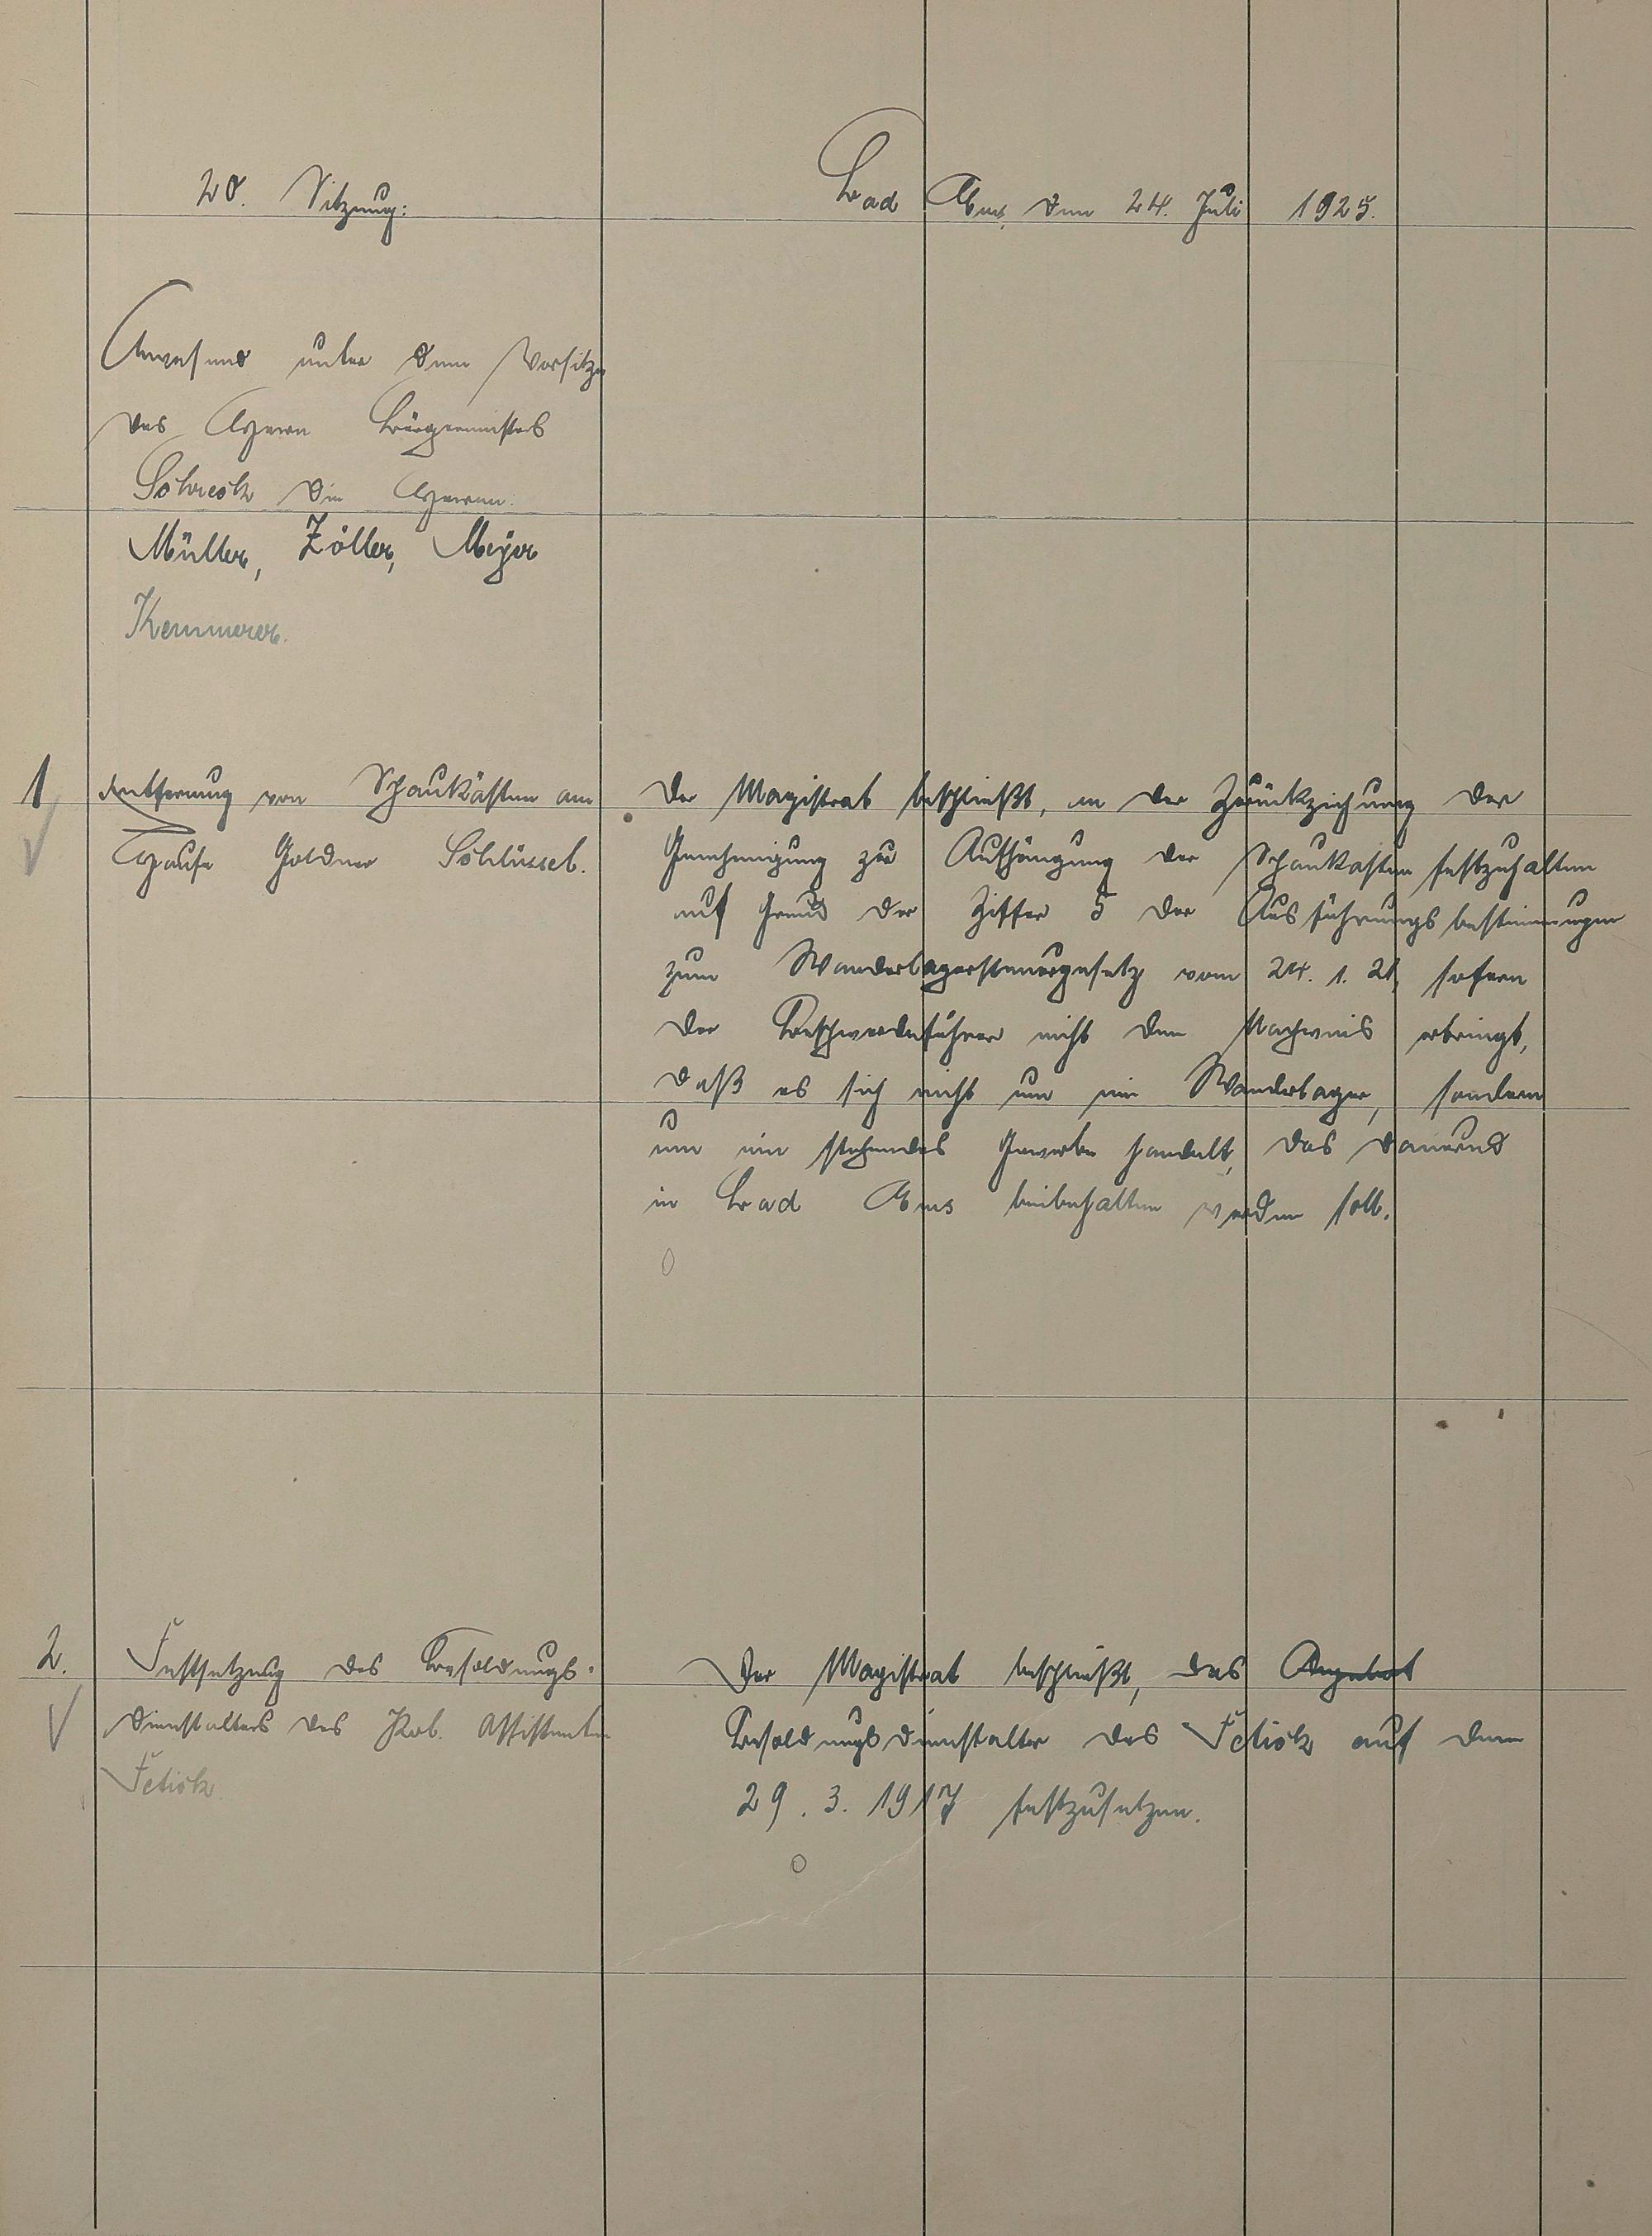 20. Sitzung:
Bad Ems, den 24. Juli 1925.
Anwesend unter dem Vorsitze
des Herrn Bürgermeisters
Schreck die Herren:
Müller, Zöller, Meyer
Kemmerer.
1 Entfernung von Schaukästen am
Hause Goldner Schlüssel.
Der Magistrat beschließt, an der Zurückziehung der
Genehmigung zur Aufhängung der Schaukasten festzuhalten
auf Grund der Ziffer 5 der Ausführungsbestimmungen
zum Wanderlagersteuergesetz vom 24. 1. 21, sofern
der Beschwerdeführer nicht den Nachweis erbringt,
daß es sich nicht um ein Wanderlager, sondern
um ein stehendes Gewerbe handelt, das dauernd
in Bad Ems beibehalten werden soll.
2. Festsetzung des Besoldungs-
dienstalters des Pol. Assistenten
Fetick
Der Magistrat beschließt, das
Besoldungsdienstalter des Fetick auf den
29. 3. 1917 festzusetzen.